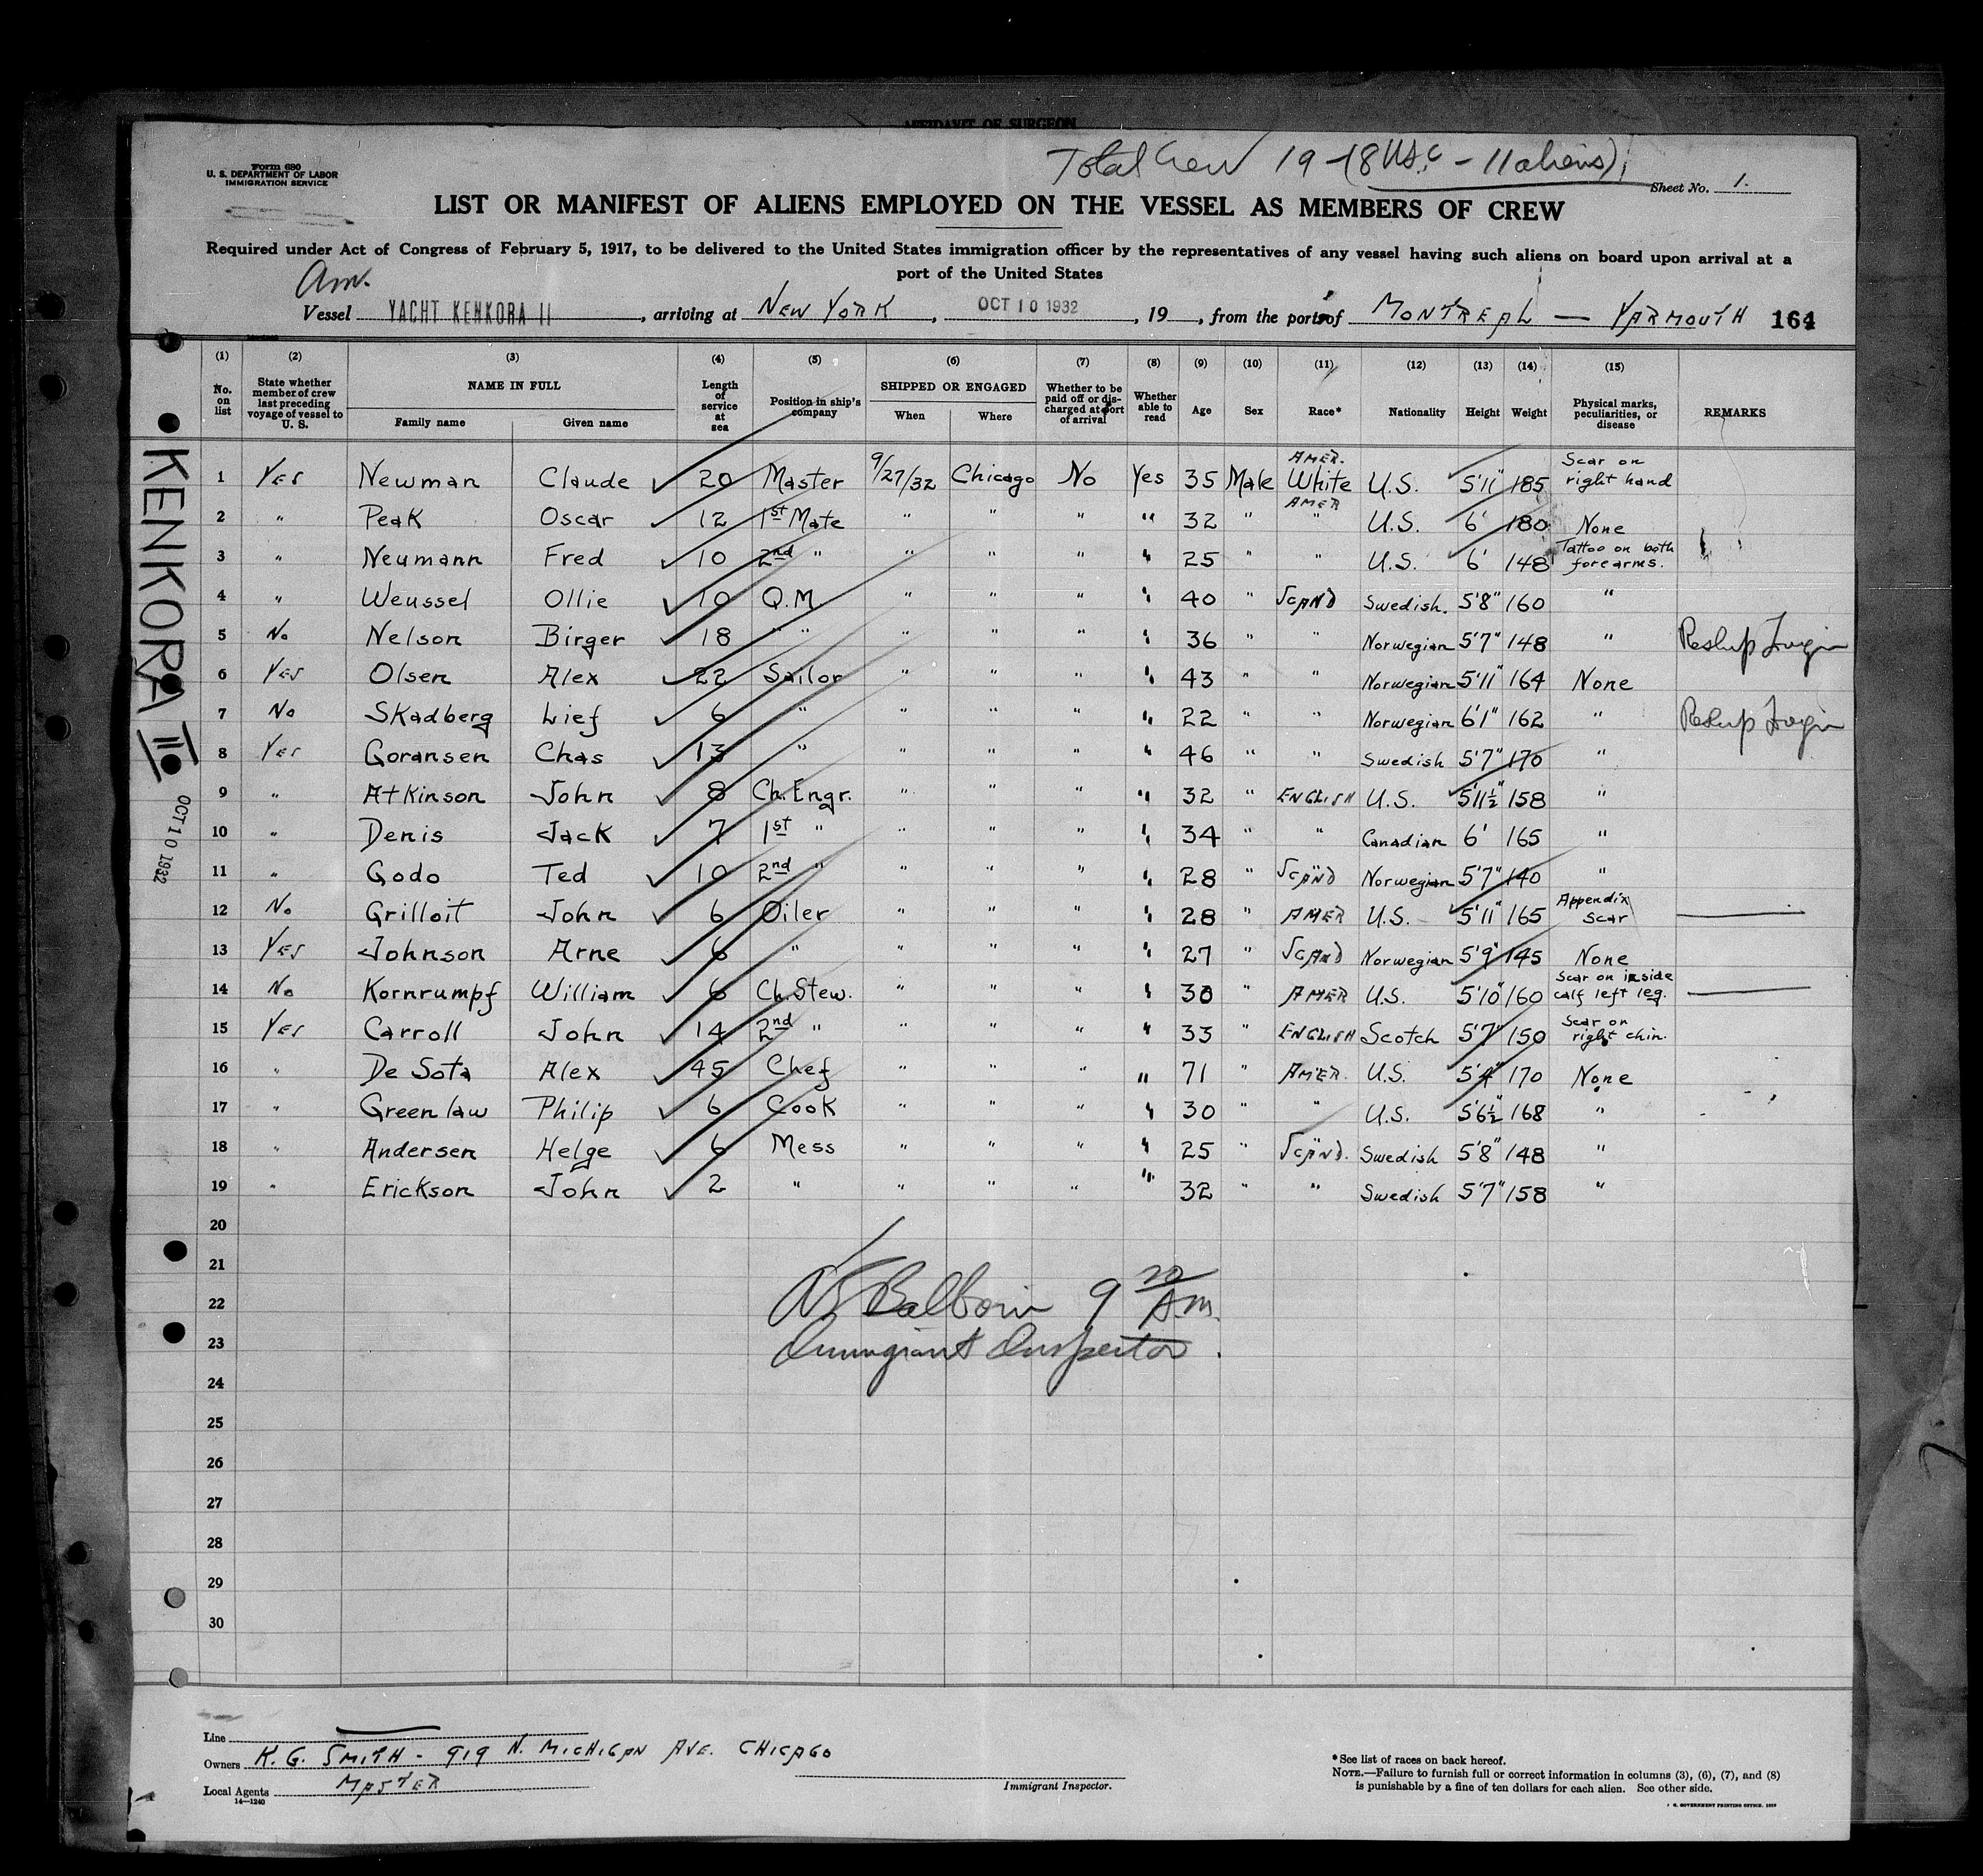 AFFIDAVIT OF SURGEON
Total Crew 19 - (8 U.S.C - 11 aliens)
Form 680
U. S. DEPARTMENT OF LABOR
IMMIGRATION SERVICE
Sheet No. 1.
LIST OR MANIFEST OF ALIENS EMPLOYED ON THE VESSEL AS MEMBERS OF CREW
Required under Act of Congress of February 5, 1917, to be delivered to the United States immigration officer by the representatives of any vessel having such aliens on board upon arrival at a
port of the United States
Am.
Vessel YACHT KENKORA II, arriving at NEW YORK, OCT 10 1932, 19, from the ports of MONTREAL — YARMOUTH 164
KENKORA II
OCT 10 1932
(1) (2) (3) (4) (5) (6) (7) (8) (9) (10) (11) (12) (13) (14) (15)
No. on list State whether member of crew last preceding voyage of vessel to U. S. NAME IN FULL Family name Given name Length of service at sea Position in ship's company SHIPPED OR ENGAGED When Where Whether to be paid off or discharged at port of arrival Whether able to read Age Sex Race* Nationality Height Weight Physical marks, peculiarities, or disease REMARKS
1 Yes Newman Claude 20 Master 9/27/32 Chicago No Yes 35 Male AMER. White U.S. 5'11" 185 Scar on right hand
2 " Peak Oscar 12 1st Mate " " " " 32 " AMER " U.S. 6' 180 None
3 " Neumann Fred 10 2nd " " " " " 25 " " U.S. 6' 148 Tattoo on both forearms.
4 " Weussel Ollie 10 Q.M. " " " " 40 " SCAND Swedish. 5'8" 160 "
5 No Nelson Birger 18 " " " " " " 36 " " Norwegian 5'7" 148 " Reship
6 Yes Olsen Alex 22 Sailor " " " " 43 " " Norwegian 5'11" 164 None
7 No Skadberg Lief 6 " " " " " 22 " " Norwegian 6'1" 162 " Reship
8 Yes Goransen Chas 13 " " " " " 46 " " Swedish 5'7" 170 "
9 " Atkinson John 8 Ch. Engr. " " " " 32 " ENGLISH U.S. 5'11½" 158 "
10 " Denis Jack 7 1st " " " " " 34 " " Canadian 6' 165 "
11 " Godo Ted 10 2nd " " " " " 28 " SCAND Norwegian 5'7" 140 "
12 No Grilloit John 6 Oiler " " " " 28 " AMER U.S. 5'11" 165 Appendix scar
13 Yes Johnson Arne 6 " " " " " 27 " SCAND Norwegian 5'9" 145 None
14 No Kornrumpf William 6 Ch. Stew. " " " " 30 " AMER U.S. 5'10" 160 Scar on inside calf left leg.
15 Yes Carroll John 14 2nd " " " " " 33 " ENGLISH Scotch 5'7" 150 Scar on right chin.
16 " De Sota Alex 45 Chef " " " " 71 " AMER. U.S. 5'4" 170 None
17 " Greenlaw Philip 6 Cook " " " " 30 " " U.S. 5'6½" 168 "
18 " Andersen Helge 6 Mess " " " " 25 " SCAND. Swedish 5'8" 148 "
19 " Erickson John 2 " " " " " 32 " " Swedish 5'7" 158 "
20
21
22
23
24
25
26
27
28
29
30
9 AM.
Immigrant Inspector.
Line
Owners K. G. SMITH - 919 N. MICHIGAN AVE. CHICAGO
Local Agents MASTER
14—1240
Immigrant Inspector.
*See list of races on back hereof.
NOTE.—Failure to furnish full or correct information in columns (3), (6), (7), and (8)
is punishable by a fine of ten dollars for each alien. See other side.
GOVERNMENT PRINTING OFFICE